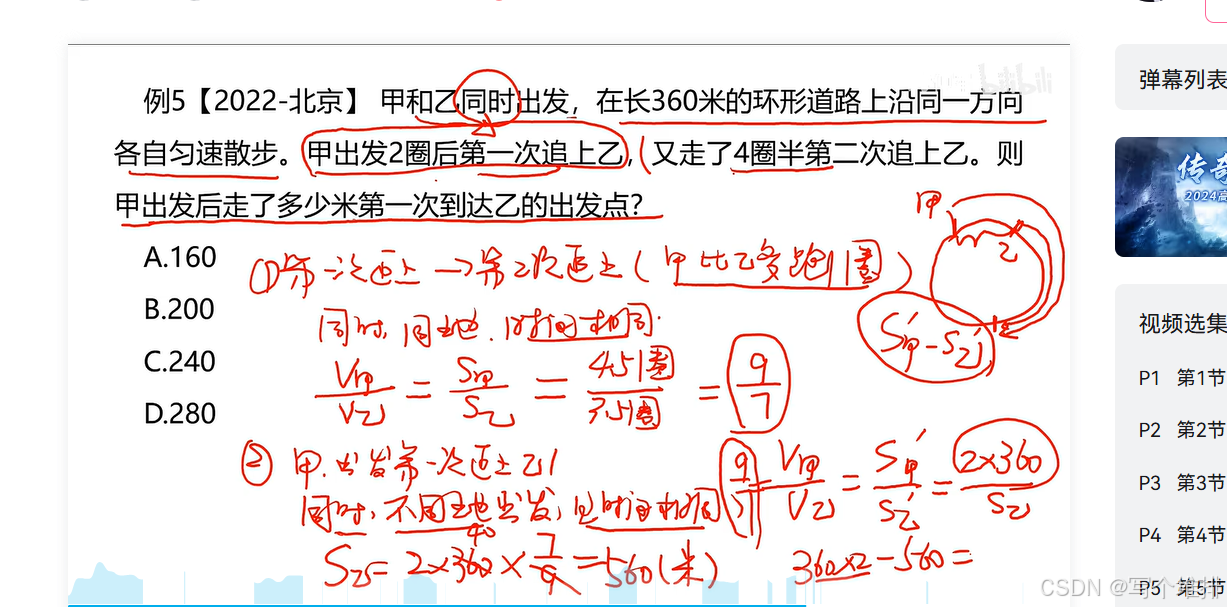 弹幕列表
bilibili
例5【2022-北京】 甲和乙同时出发，在长360米的环形道路上沿同一方向
各自匀速散步。甲出发2圈后第一次追上乙，又走了4圈半第二次追上乙。则
甲出发后走了多少米第一次到达乙的出发点?
传奇
2024高
A.160
B.200
C.240
D.280
甲
乙
①第一次追上→第2次追上(甲比乙多跑1圈)
同时,同地.时间相同.
S甲′-S乙′
V甲/V乙 = S甲/S乙 = 4.5圈/3.5圈 = 9/7
② 甲.出发第一次追上乙
同时,不同地出发,但时间相同
9/7 = V甲/V乙 = S甲′/S乙′ = 2×360/S乙
40
S乙= 2×360×7/9=560(米)
360×2-560=
视频选集
P1 第1节
P2 第2节
P3 第3节
P4 第4节
P5 第5节
CSDN @写个维排